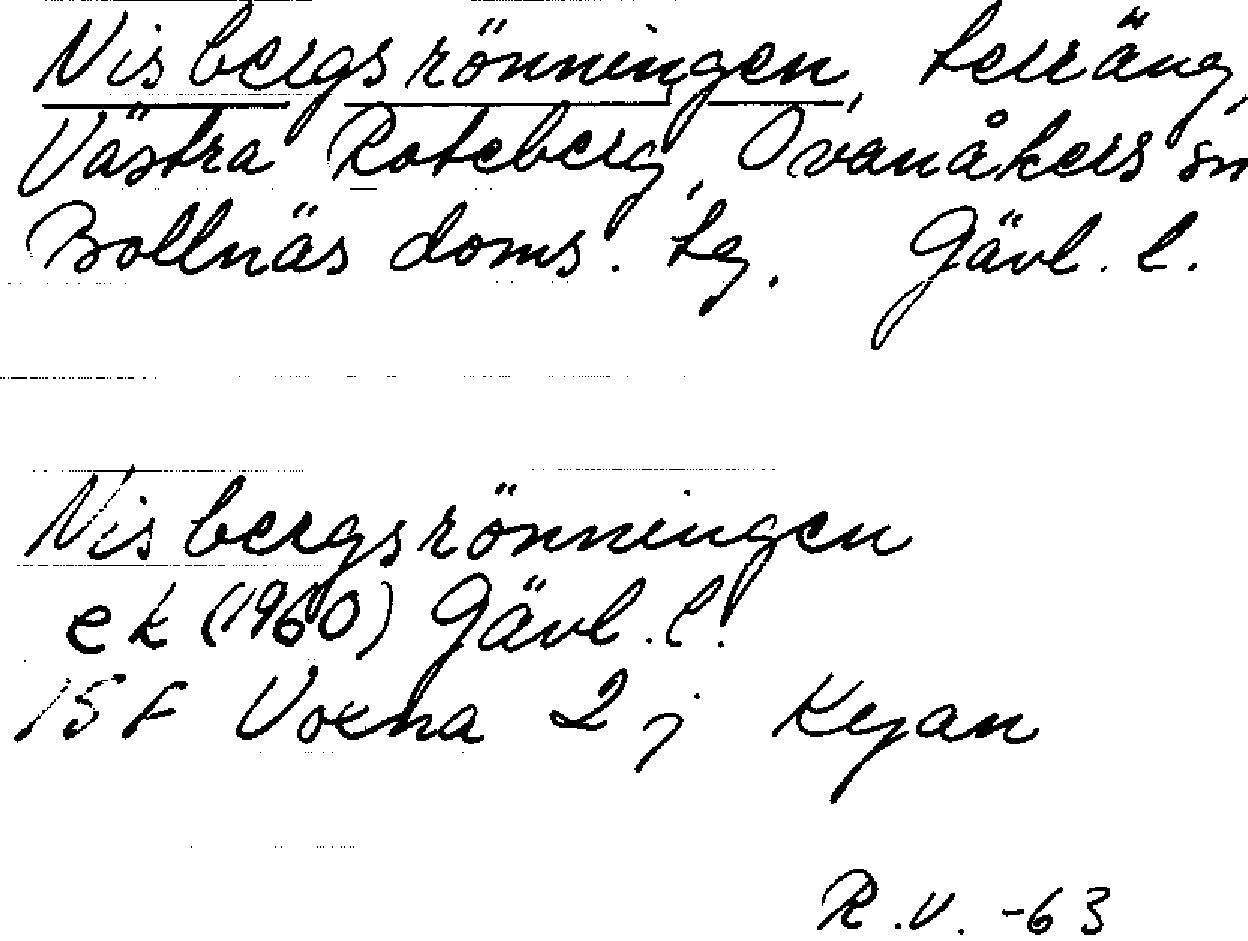 Nisbergsrönningen, terräng,
Västra Roteberg, Ovanåkers sn
Bollnäs doms. tg. Gävl. l.
Nisbergsrönningen
ek (1960) Gävl. l.
15F Voxna 2 j Kyan
R.V. -63